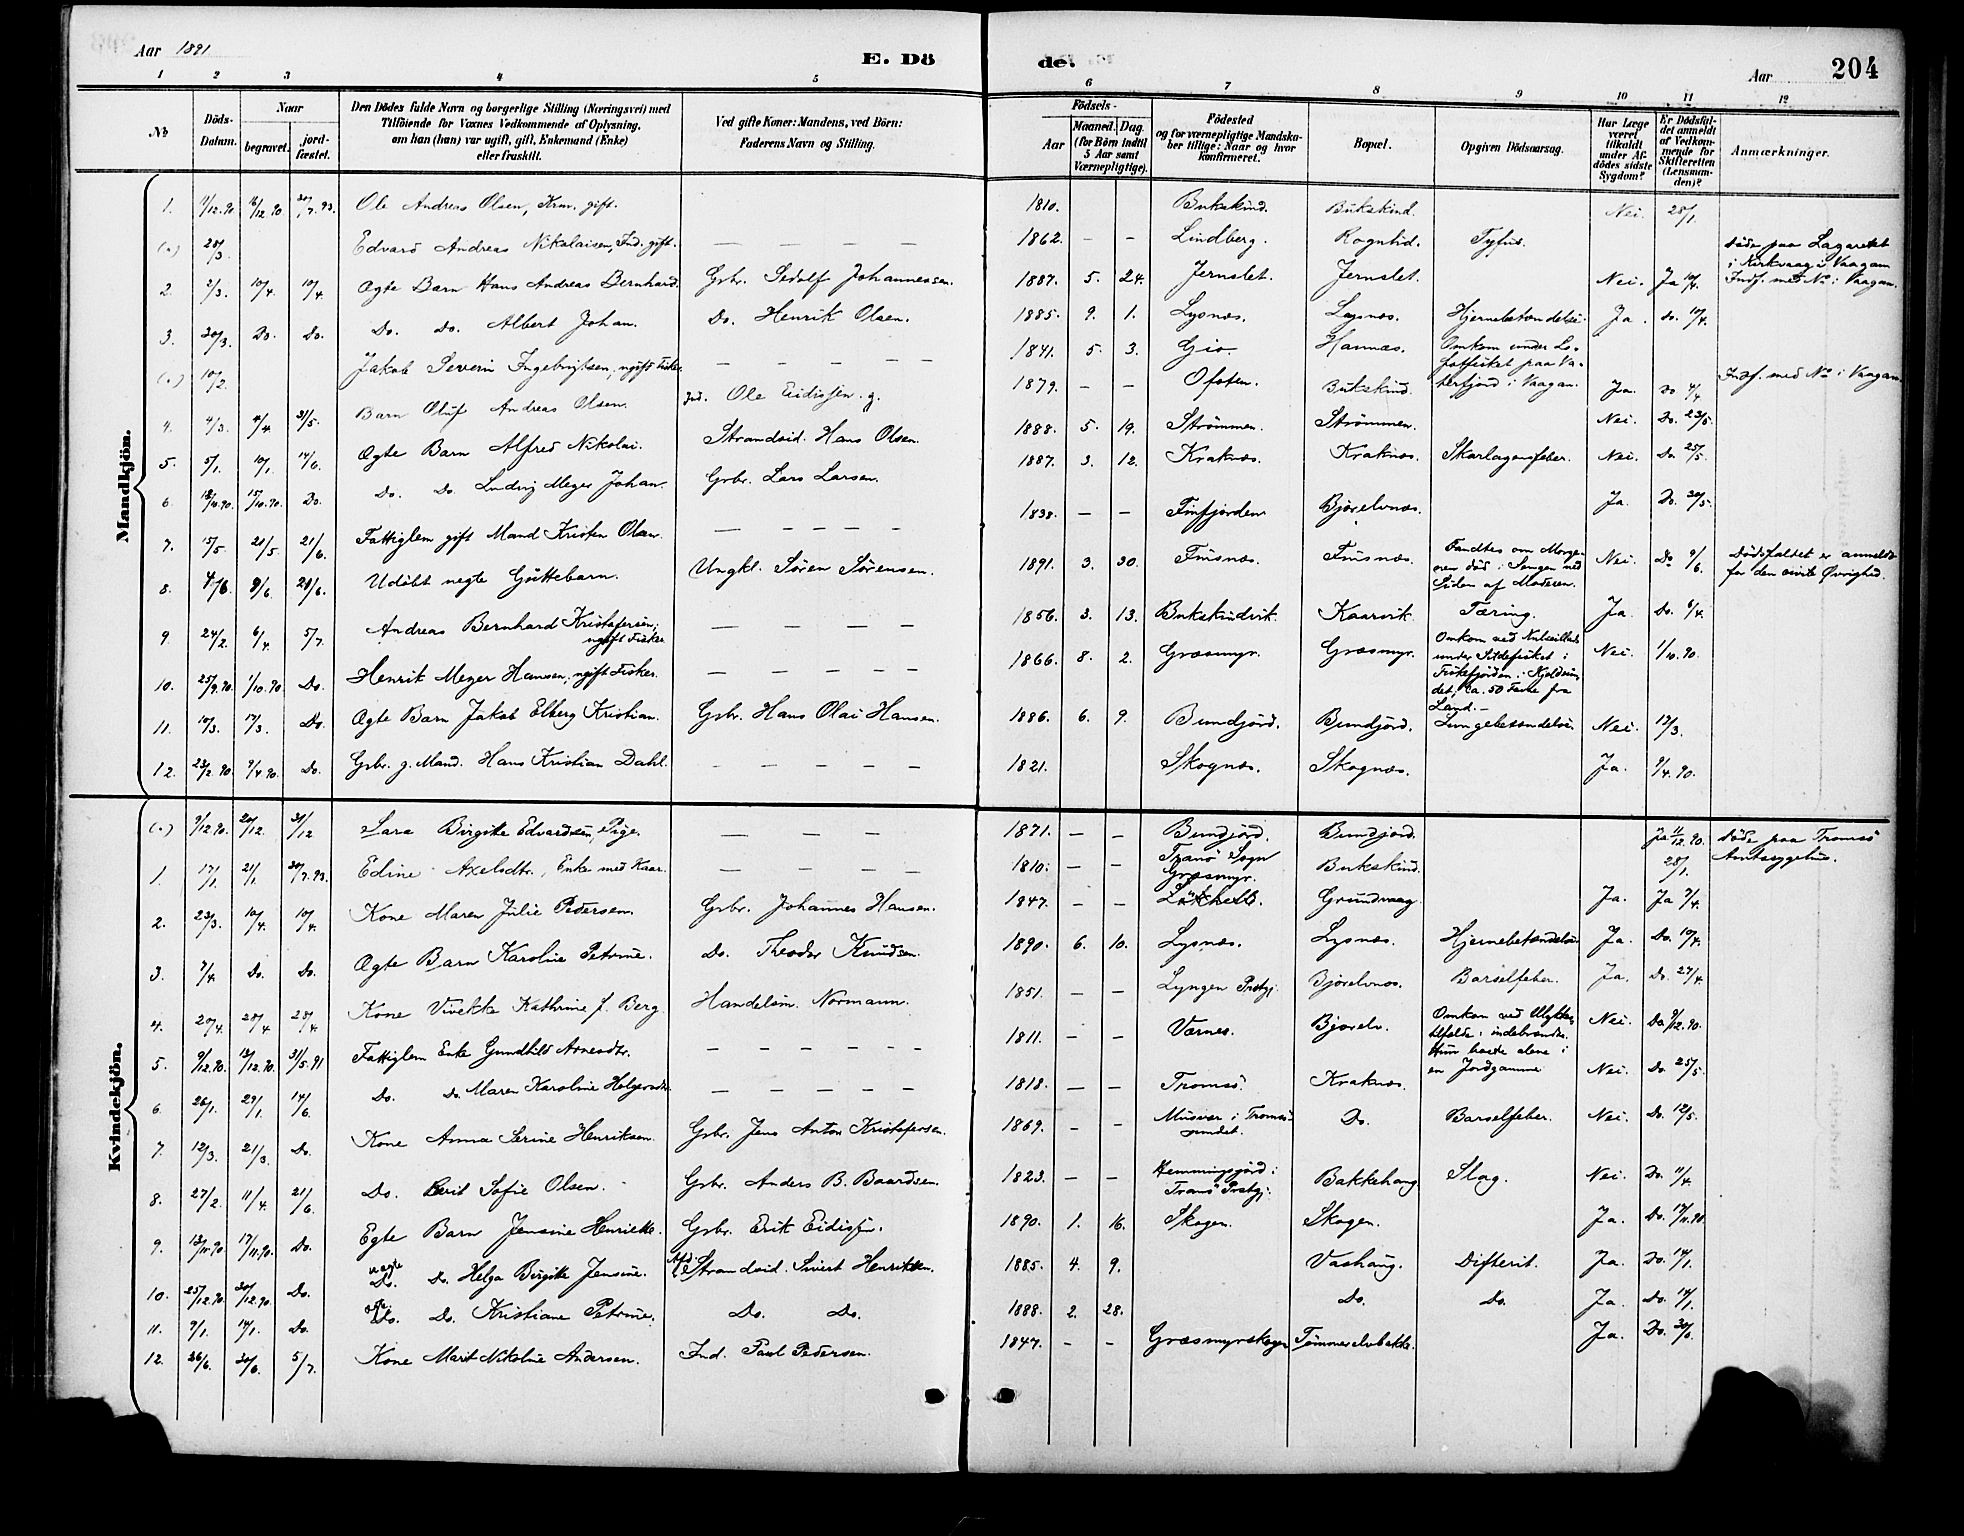 Aar 1891
E. Dö
de.
Aar
204
1 2 3 4 5 6 7 8 9 10 11 12
No
Döds-Datum.
Naar
begravet.
jord-fæstet.
Den Dödes fulde Navn og borgerlige Stilling (Næringsvei) med
Tilföiende for Voxnes Vedkommende af Oplysning,
om han (hun) var ugift, gift, Enkemand (Enke)
eller fraskilt.
Ved gifte Koner: Mandens, ved Börn:
Faderens Navn og Stilling.
Födsels-
Aar
Maaned. Dag.
(for Börn indtil
5 Aar samt
Værnepligtige).
Födested
og for værnepligtige Mandska-
ber tillige: Naar og hvor
konfirmeret.
Bopæl.
Opgiven Dödsaarsag.
Har Læge
været
tilkaldt
under Af-
dödes sidste
Sygdom?
Er Dödsfal-
det anmeldt
af Vedkom-
mende for
Skifteretten
(Lensman-
den)?
Anmærkninger.
Mandkjön.
1. 11/12.90 16/12.90 30/7.93. Ole Andreas Olsen, Krm. gift. 1810. Bukskind. Bukskind. Nei. 28/1.
(.) 20/3. Edvard Andreas Nikolaisen, Ind. gift. — — — — 1862. – – Lindberg. Rogntid. Tyfus. Döde paa Lazarettet
i Kirkvaag i Vaagan
2. 2/3. 10/4. 10/4 Ægte Barn Hans Andreas Bernhard. Grbr. Sedolf Johannessen. 1887. 5. 24. Jernslet. Jernslet. Nei. Ja 10/4. Indf. med No i Vaagan.
3. 20/3. Do. Do. Do. Do. Albert Johan. Do. Henrik Olsen. 1885. 9. 1. Lysnæs. Lysnæs. Hjernebetændelse. Ja. Do. 10/4.
(.) 10/2. Jakob Severin Ingebrigtsen, ugift Fisker. — — — — 1841. 5. 3. Gio. Hannæs. Omkom under Lo-
fotfisket paa Va-
terfjord i Vaagan. Indf. med No i Vaagan.
4. 4/3. 4/4 31/5. Barn Oluf Andreas Olsen. Ind. Ole Eidissen. g. 1879. – – Ofoten. Bukskind. Ja. Do 4/4
5. 5/1. 10/1. 14/6. Ægte Barn Alfred Nikolai. Strandsid. Hans Olsen. 1888. 5. 19. Strömmen. Strömmen. Nei. Do. 23/5.
6. 15/10.90. Do. Do. Do. Ludvig Meyer Johan. Grbr. Lars Larsen. 1887. 3. 12. Kraknæs. Kraknæs. Skarlagensfeber. Nei. Do 25/5.
7. 15/5. 21/5. 21/6. Fattiglem gift Mand Kristen Olsen. — — — — 1838. – – Finfjorden Bjorelvnæs. Ja. Do. 20/5.
8. 4/6. 9/6. 21/6. Udöbt uegte Guttebarn. Ungkl. Sören Sörensen. 1891. 3. 30. Finsnæs. Finsnæs. Fandtes om Morge-
nen död i Sengen ved
Siden af Moderen. Nei. Do 9/6. Dödsfaldet er anmeldt
for den civile Øvrighed.
9. 24/2. 6/4. 5/7. Andreas Bernhard Kristofersen,
ugift Fisker. — — — — 1856. 3. 13. Bukskindvik. Kaarvik. Tæring. Ja. Do. 6/4.
10. 25/9.90. 1/10.90. Do. Henrik Meyer Hansen, ugift Fisker. — — — — 1866. 8. 2. Græsmyr. Græsmyr. Omkom ved
under Sildefisket i
Fiskefjorden i
ca. 50 Favne fra
Land. – Nei. 1/10.90.
11. 10/3. 17/3. Do. Ægte Barn Jakob Elberg Kristian. Grbr. Hans Olai Hansen. 1886. 6. 9. Bundjord. Bundjord. Lungebetændelse. Nei. 17/3.
12. 23/2.90. 9/4.90. Do. Grbr. g. Mand. Hans Kristian Dahl. – – – – 1821. Skognæs. Skognæs. Ja. 9/4.90.
Kvindekjön.
(.) 9/12.90. 20/12. 31/12 Sara Birgitte Edvardsen, Pige. — — — 1871. – – Bundjord. Bundjord. Ja 11/12.90. Döde paa Tromsö
Amtssygehus.
1. 17/1. 21/1. 30/7.93. Edine Axelsdtr., Enke med Kaar. — — — — 1810. – – Tranö Sogn
Græsmyr. Bukskind. 28/1.
2. 23/3. 10/4. 10/4. Kone Maren Julie Pedersen. Grbr. Johannes Hansen. 1847. – – Grundvaag. Ja. Ja 7/4.
3. 7/4. Do. Do. Ægte Barn Karoline Petrine. Do. Theodor Knudsen. 1890. 6. 10. Lysnæs. Lysnæs. Hjernebetændelse. Ja. Do. 10/4.
4. 20/4. 28/4 28/4 Kone Vivekke Kathrine f. Berg. Handelsm. Normann. 1851. – – Lyngen Prstgj. Bjorelvnæs. Barselfeber. Ja. Do. 27/4.
5. 9/12.90. 13/12.90. 31/5.91 Fattiglem Enke Gundhild Arnesdtr. – – – – 1811. – – Værnes. Bjorelv. Omkom ved Ulykkes-
tilfælde: indebrændte.
Hun boede alene i
en Jordgamme Nei. Do. 9/12.90.
6. 26/1. 29/1. 14/6. Do. Do. Maren Karoline Holgersdtr. – – – – 1818. – – Tromsö. Kraknæs. Nei. Do 25/5.
7. 12/3. 21/3. Do. Kone Anna Serine Henriksen. Grbr. Jens Anton Kristofersen. 1869. – – Musvær i Tromsö-
sundet. Do. Barselfeber. Nei. Do. 12/5.
8. 27/2. 11/4. 21/6. Do. Berit Sofie Olsen. Grbr. Anders B. Baardsen. 1823. – – Hemmingsjord i
Tranö Prstgj. Bakkehaug Slag. Nei. Do. 11/4.
9. 13/11.90. 17/11.90. Do. Egte Barn Jensine Henriette. Grbr. Erik Eidissen. 1890. 1. 16. Skogen. Skogen. Ja. Do. 17/11.90.
10. 25/12.90. 30/12.90. Do. uegte
Do. Do. Helga Birgitte Jensine. Strandsid. Sivert Henriksen. 1885. 4. 9. Vashaug. Difterit. Ja. Do. 14/1.
11. 9/1. 14/1. Do. Do. Do. Kristiane Petrine. Do. Do. 1888. 2. 28. Do. Do. Ja. Do. 14/1.
12. 26/6. 30/6. 5/7. Kone Marit Nikoline Andersen. Ind. Paul Pedersen. 1847. – – Græsmyrskogen Tömmerelvbakke. Ja. Do. 30/6.